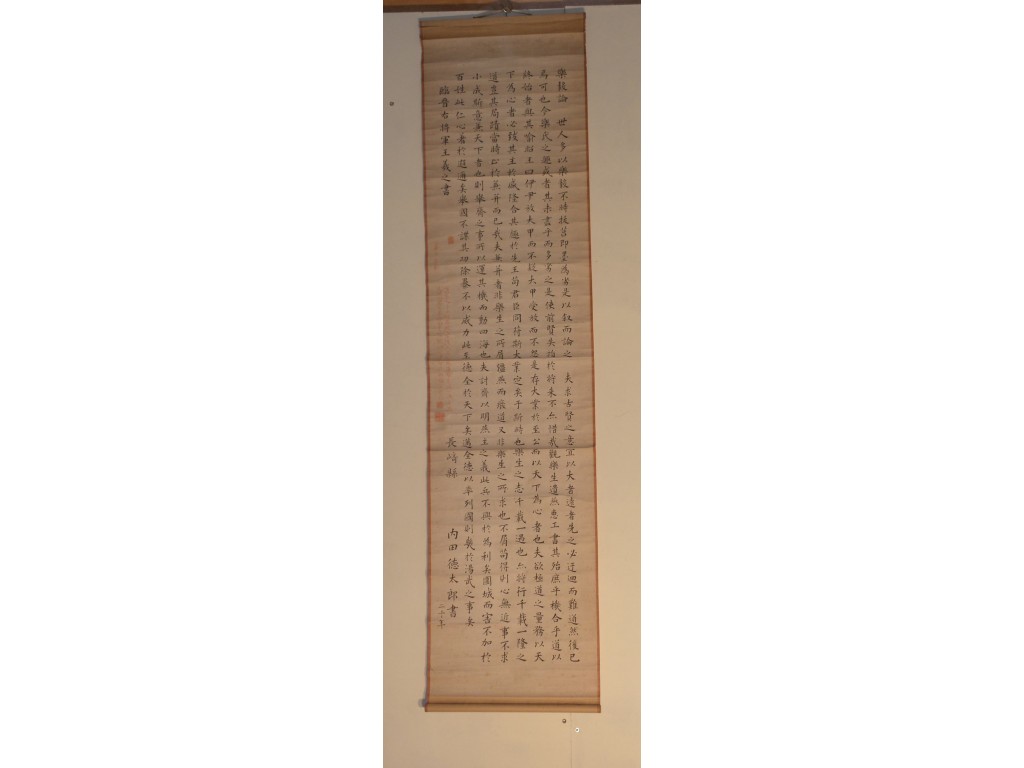 樂毅論 世人多以樂毅不時拔莒即墨為劣是以叙而論之 夫求古賢之意宜以大者遠者先之必迂迴而難通然後已
焉可也今樂氏之趣或者其未盡乎而多劣之是使前賢失指於將來不亦惜哉觀樂生遺燕惠王書其殆庶乎機合乎道以
終始者與其喻昭王曰伊尹放大甲而不疑大甲受放而不怨是存大業於至公而以天下為心者也夫欲極道之量務以天
下為心者必致其主於盛隆合其趣於先王苟君臣同符斯大業定矣于斯時也樂生之志千載一遇也亦將行千載一隆之
道豈其局蹟當時止於兼并而已哉夫兼并者非樂生之所屑彊燕而廢道又非樂生之所求也不屑苟得則心無近事不求
小成斯意兼天下者也則舉齊之事所以運其機而動四海也夫討齊以明燕主之義此兵不興於為利矣圍城而害不加於
百姓此仁心著於遐邇矣舉國不謀其功除暴不以威力此至德全於天下矣邁全德以率列國則幾於湯武之事矣
臨晉右將軍王羲之書
長崎縣 内田德太郎書